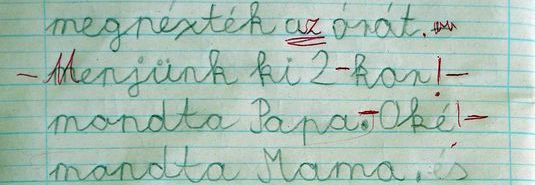 megnézték az órát.
- Menjünk ki 2-kor! -
mondta Papa. - Oké! -
mondta Mama, és